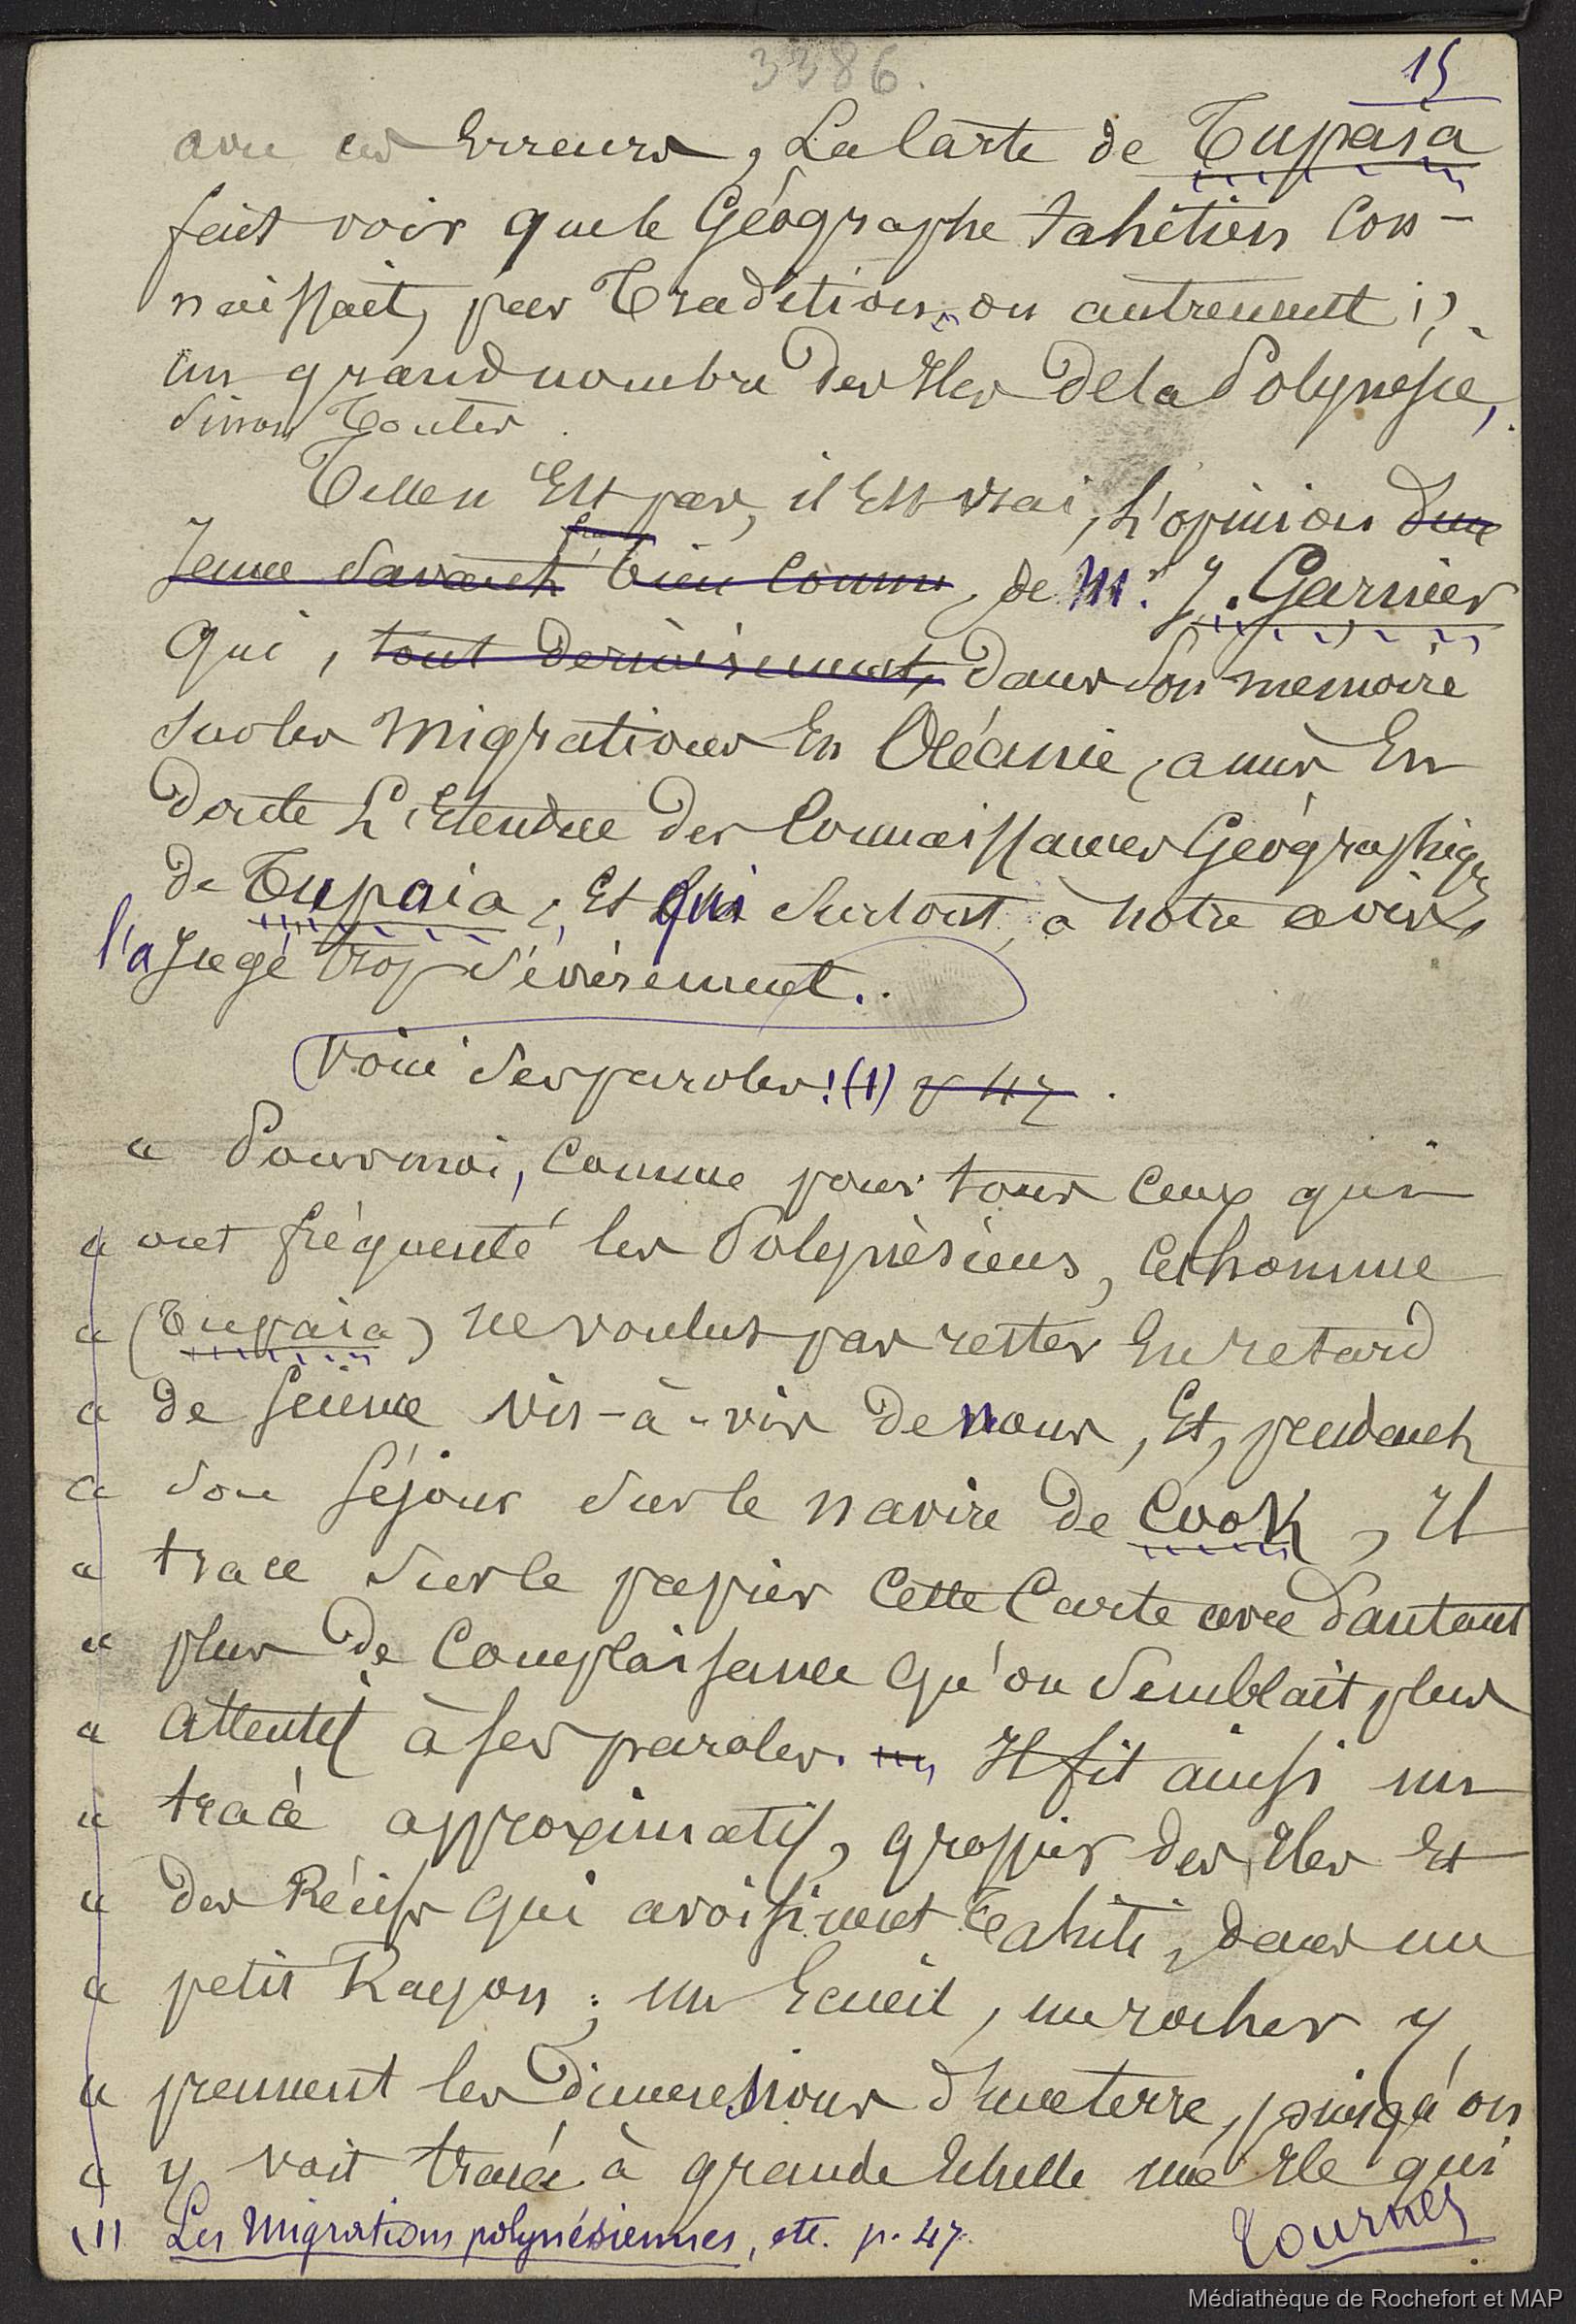 3386.
15
avec ces Erreurs, La Carte de Tupaia
fait voir que le Géographe tahitien Con-
naissait, par Tradition, ou autrement,
un grand nombre des Iles de la Polynésie,
Sinon Toutes.
Telle n'Est pas, il Est vrai, L'opinion d'un
Jeune Savant bien Connu, de Mr. J. Garnier
qui, tout dernièrement, dans Son mémoire
Sur les Migrations En Océanie, a mis En
doute L'Etendue des Connaissances Géographiqs
de Tupaia, Et qui Surtout, à notre avis,
l'a Jugé trop Sévèrement..
Voici Ses paroles: (1) p 47.
« Pour moi, Comme pour tous Ceux qui
« ont fréquenté les Polynèsiens, Cet homme
« (Tupaia) ne voulut pas rester En retard
« de Science vis-à-vis de nous, Et, pendant
« Son Séjour Sur le navire de Cook, Il
« trace Sur le papier Cette Carte avec d'autant
« plus de Complaisance qu'on Semblait plus
« attentif à Ses paroles. Il fit ainsi un
« tracé approximatif, grossier des Iles Et
« des Récifs qui avoisinent Tahiti, dans un
« petit Rayon; un Ecueil, un rocher y
« prennent les dimensions d'une terre, puisqu'on
« y voit tracée à grande Echelle une Ile qui
(1) Les Migrations polynésiennes, etc. p. 47.
Tournez
Médiathèque de Rochefort et MAP